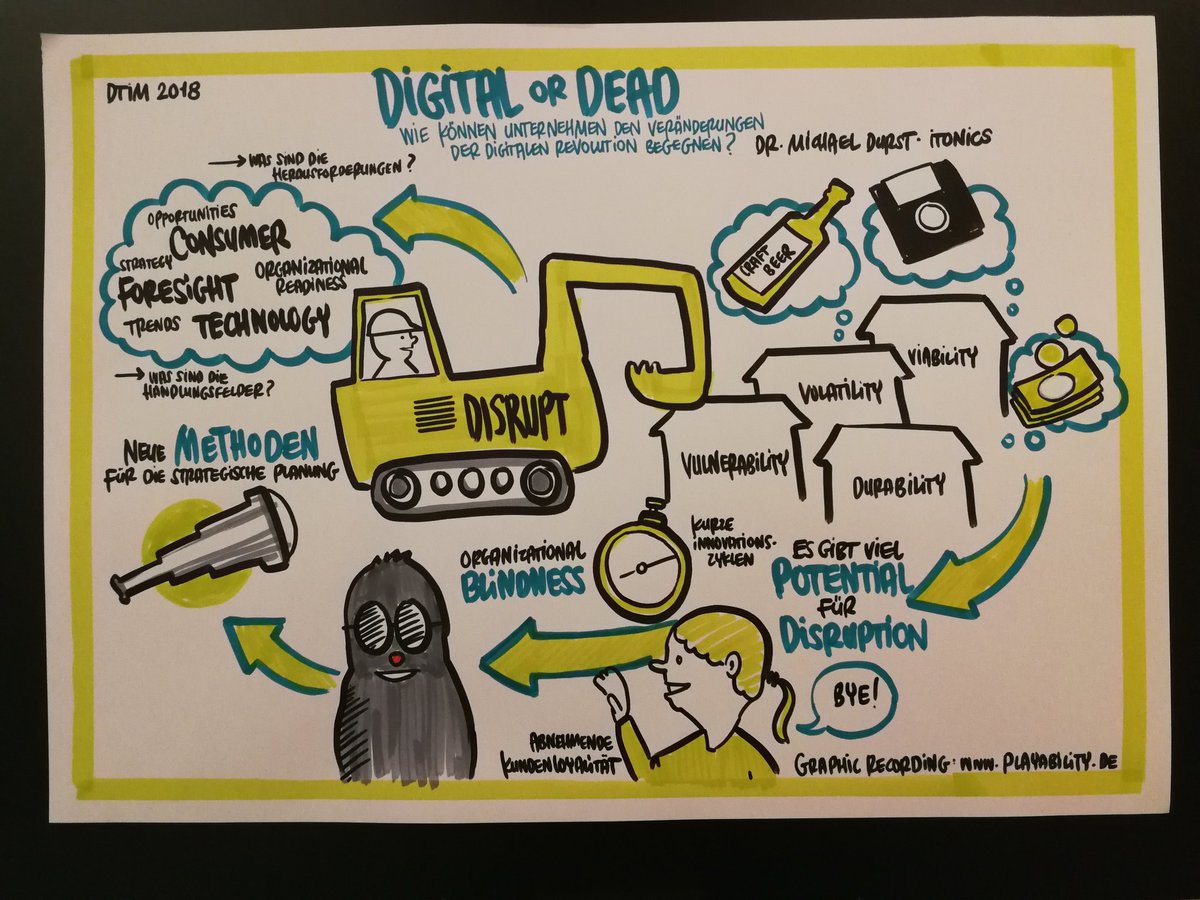 DTIM 2018
DIGITAL OR DEAD
WIE KÖNNEN UNTERNEHMEN DEN VERÄNDERUNGEN
DER DIGITALEN REVOLUTION BEGEGNEN?
DR. MICHAEL DURST · ITONICS
→ WAS SIND DIE
HERAUSFORDERUNGEN?
OPPORTUNITIES
CONSUMER
STRATEGY
FORESIGHT
ORGANIZATIONAL
READINESS
TRENDS TECHNOLOGY
→ WAS SIND DIE
HANDLUNGSFELDER?
CRAFT
BEER
DISRUPT
VIABILITY
VOLATILITY
VULNERABILITY
DURABILITY
NEUE METHODEN
FÜR DIE STRATEGISCHE PLANUNG
ORGANIZATIONAL
BLINDNESS
KURZE
INNOVATIONS-
ZYKLEN
ES GIBT VIEL
POTENTIAL
FÜR
DISRUPTION
BYE!
ABNEHMENDE
KUNDENLOYALITÄT
GRAPHIC RECORDING: WWW.PLAYABILITY.DE